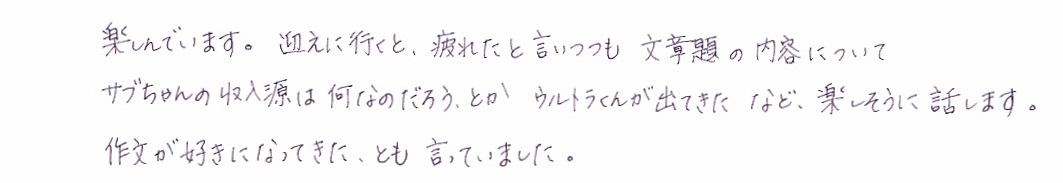 楽しんでいます。迎えに行くと、疲れたと言いつつも 文章題の内容について
サブちゃんの収入源は何なのだろう、とか ウルトラくんが出てきた など、楽しそうに話します。
作文が好きになってきた、とも 言っていました。